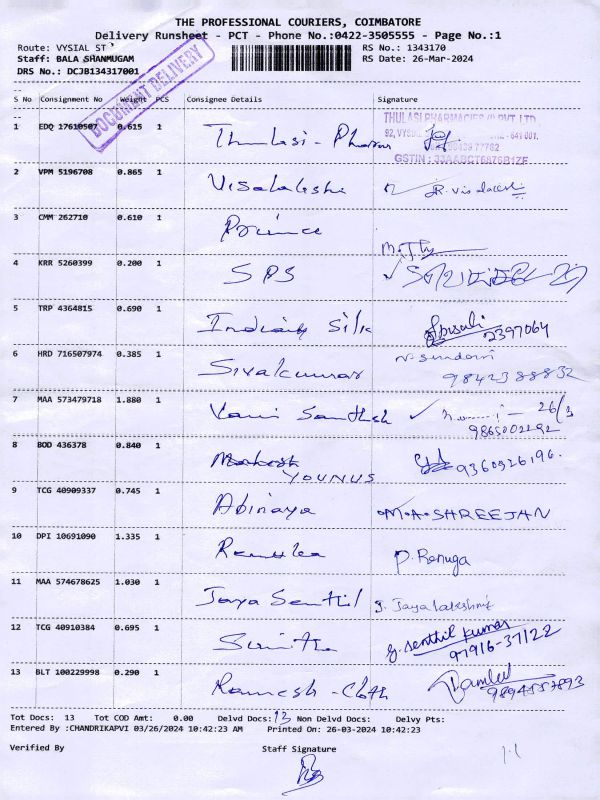 THE PROFESSIONAL COURIERS, COIMBATORE
Delivery Runsheet - PCT - Phone No.:0422-3505555 - Page No.:1
Route: VYSIAL ST
RS No.: 1343170
Staff: BALA SHANMUGAM
RS Date: 26-Mar-2024
DRS No.: DCJB134317001
DOCUMENT DELIVERY
S No Consignment No Weight PCS Consignee Details Signature
1 EDQ 17610507 0.615 1 Thulasi - Pharm
THULASI PHARMACIES (I) PVT LTD.
92, VYS 641 001.
GSTIN : 33AABCT6876B1ZF
2 VPM 5196708 0.865 1 Visalakshi R. Visalakshi
3 CMM 262710 0.610 1 Prince
4 KRR 5260399 0.200 1 SPS
5 TRP 4364815 0.690 1 Indian Silk
2397064
6 HRD 716507974 0.385 1 Sivakumar N. Sundari
9842388832
7 MAA 573479718 1.880 1 Vani Santhosh 26/3
9865002292
8 BOD 436378 0.840 1 Mahesh 9360926196.
YOUNUS
9 TCG 40909337 0.745 1 Abinaya M.A.SHREEJAN
10 DPI 10691090 1.335 1 Renuka P. Renuga
11 MAA 574678625 1.030 1 Jaya Senthil J. Jayalakshmi
12 TCG 40910384 0.695 1 Sunitha G. Senthil Kumar
97916-37122
13 BLT 100229998 0.290 1 Ramesh - Cloth
9894557893
Tot Docs: 13 Tot COD Amt: 0.00 Delvd Docs: 13 Non Delvd Docs: Delvy Pts:
Entered By :CHANDRIKAPVI 03/26/2024 10:42:23 AM Printed On: 26-03-2024 10:42:23
Verified By Staff Signature